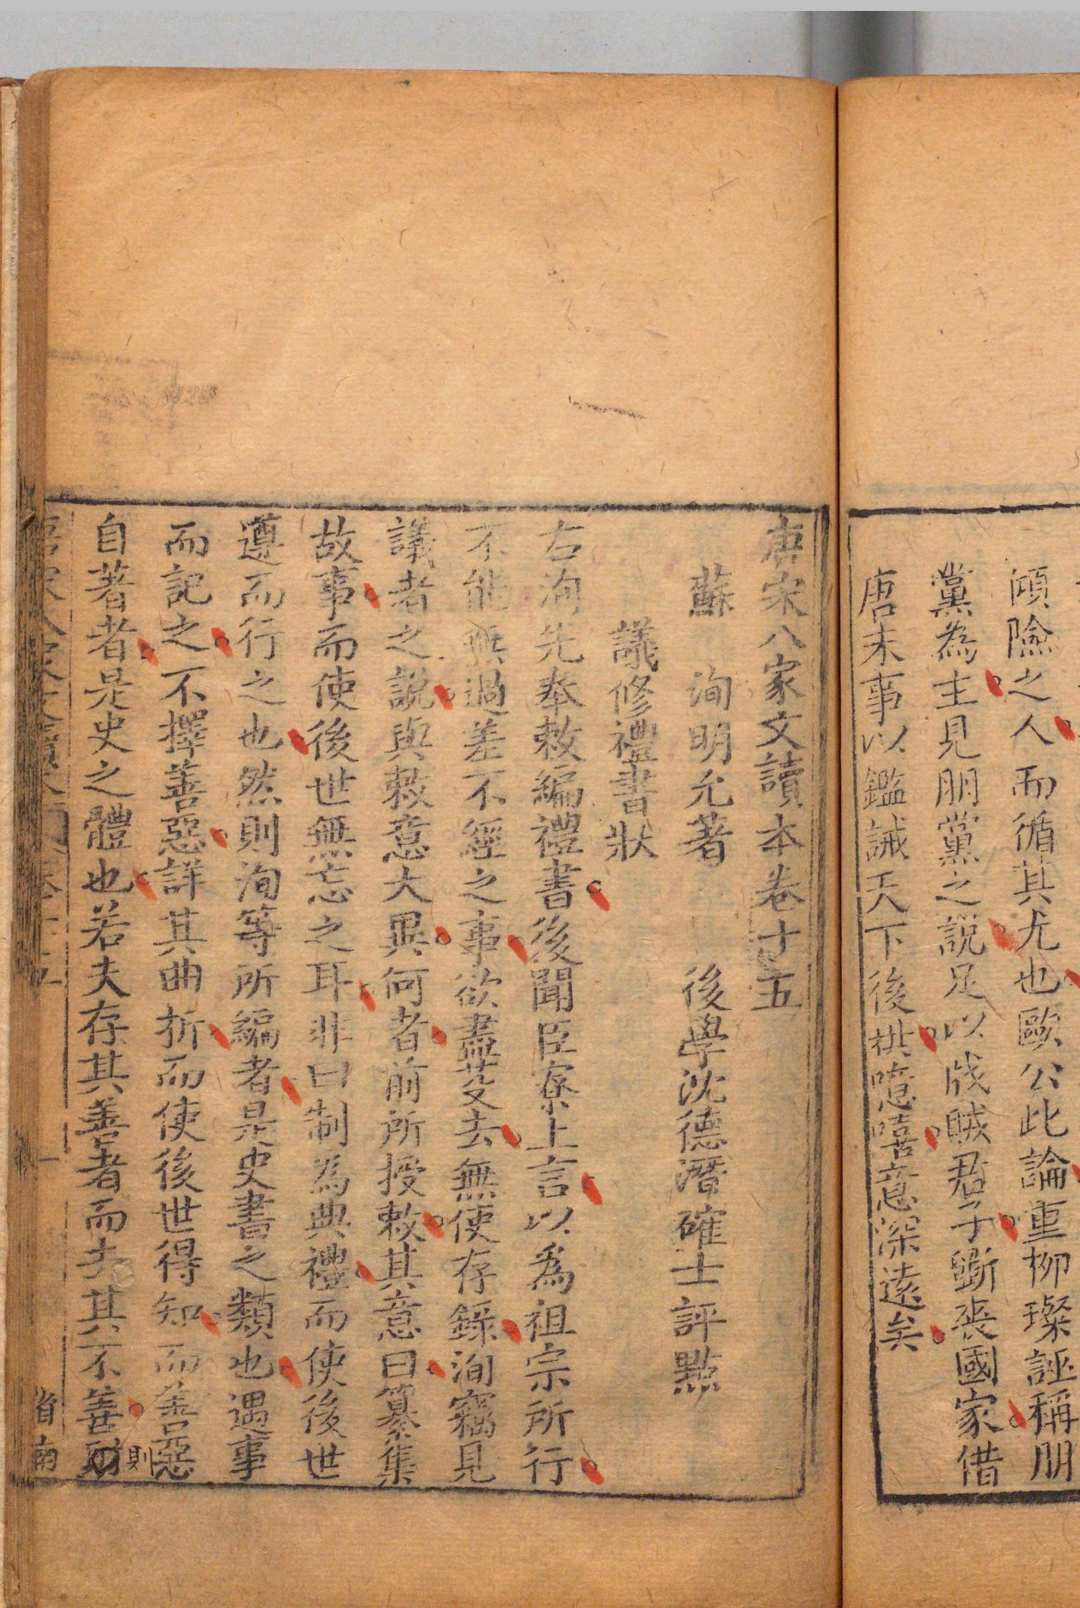 傾險之人而循其尤也歐公此論重柳璨誣稱朋
黨為主見朋黨之說足以戕賊君子斲喪國家借
唐末事以鑑誡天下後世噫嘻意深遠矣
唐宋八家文讀本卷十五
蘇　洵明允著　後學沈德潛確士評點
議修禮書狀
右洵先奉敕編禮書後聞臣寮上言以為祖宗所行
不能無過差不經之事欲盡芟去無使存錄洵竊見
議者之說與敕意大異何者前所授敕其意曰纂集
故事而使後世無忘之耳非曰制為典禮而使後世
遵而行之也然則洵等所編者是史書之類也遇事
而記之不擇善惡詳其曲折而使後世得知而善惡
則
自著者是史之體也若夫存其善者而去其不善
唐宋八家文讀本 卷十五 一